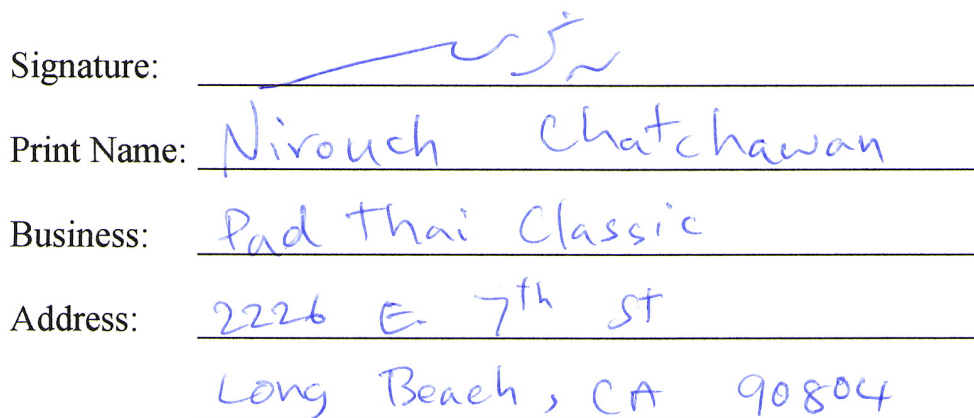 Signature:
Print Name: Nirouch Chatchawan
Business: Pad Thai Classic
Address: 2226 E. 7th St
Long Beach, CA 90804